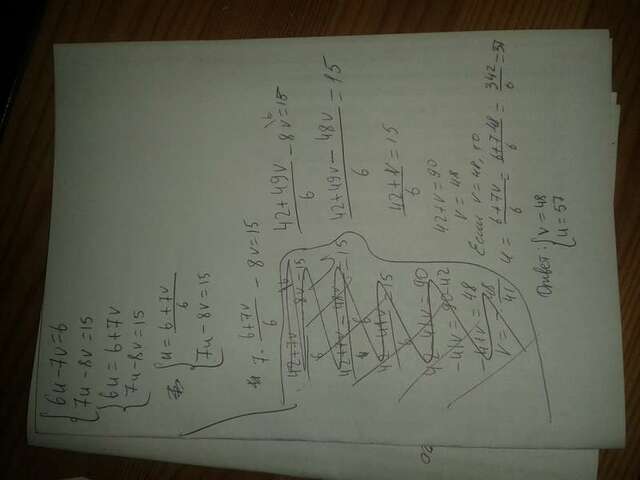 {6u-7v=6
{7u-8v=15
{6u=6+7v
{7u-8v=15
{u=\frac{6+7v}{6}
{7u-8v=15
7·\frac{6+7v}{6}-8v=15
\frac{42+49v}{6}-8v\6=15
\frac{42+49v-48v}{6}=15
\frac{42+v}{6}=15
42+v=90
v=48
Если v=48, то
u=\frac{6+7v}{6}=\frac{6+7·48}{6}=\frac{342}{6}=57
Ответ: {v=48
{u=57
-41v=90-42
-41v=48